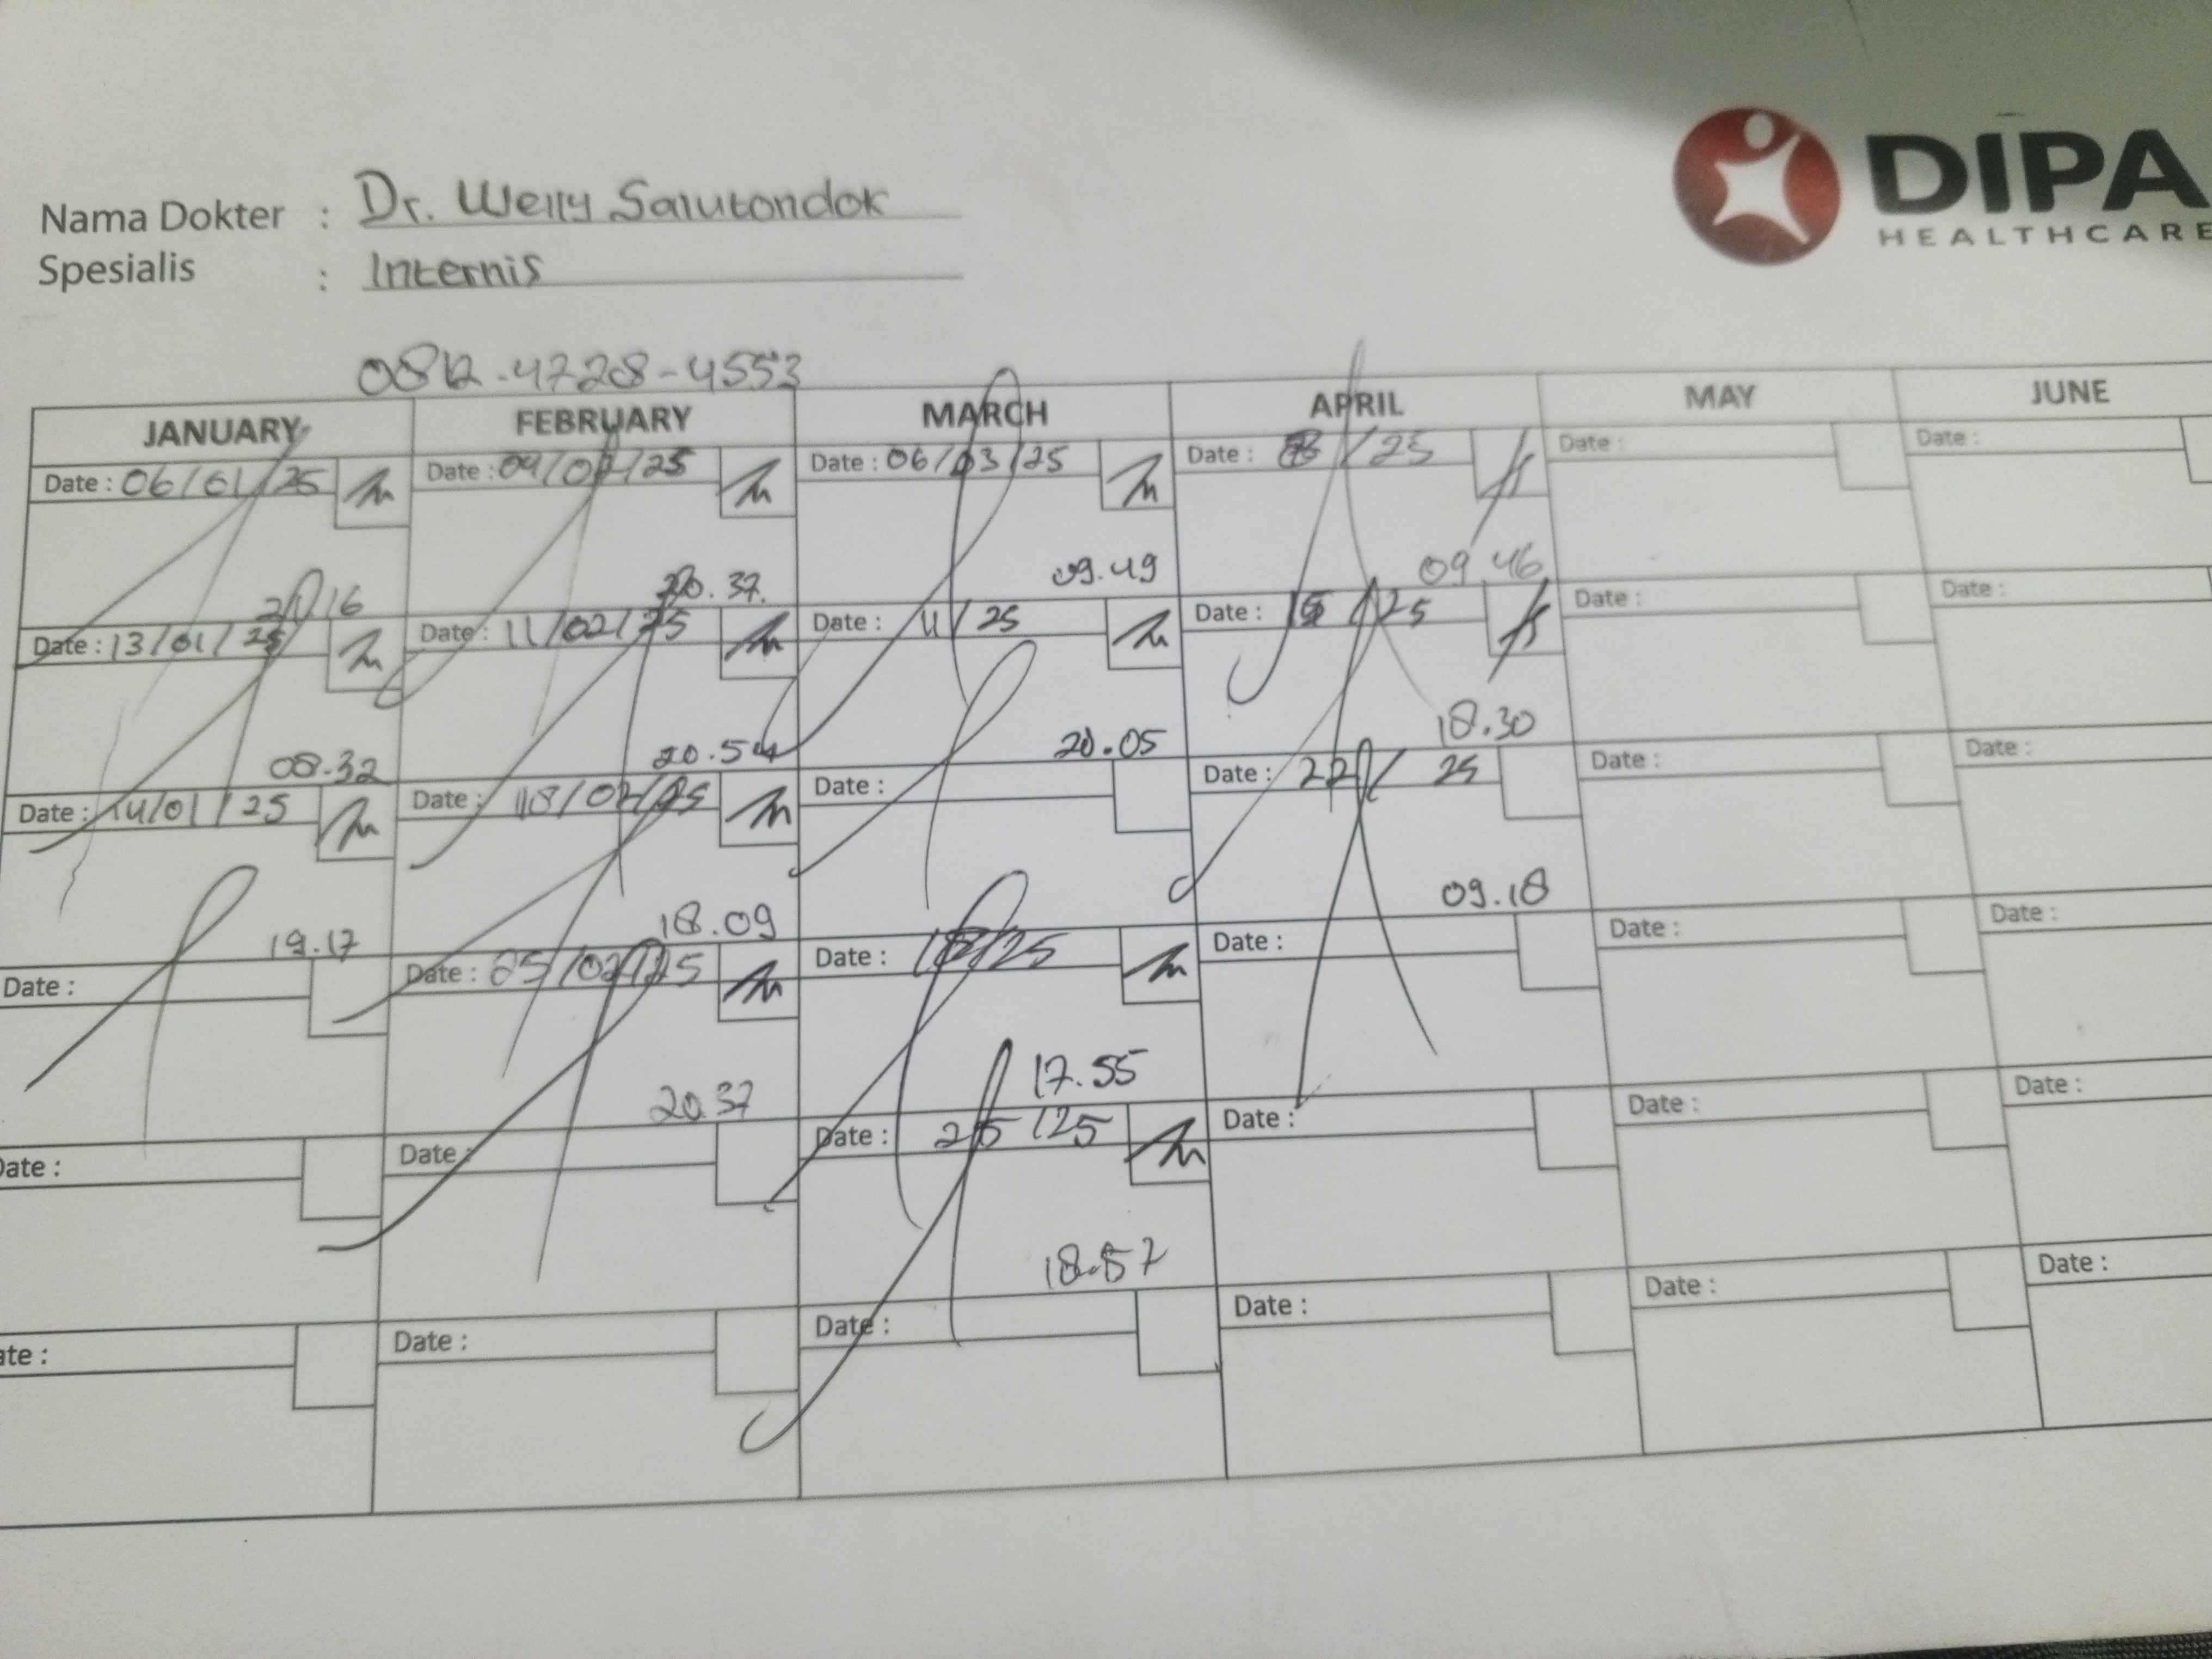 DIPA
HEALTHCARE
Nama Dokter : Dr. Welly Salutondok
Spesialis : Internis
0812-4728-4553
JANUARY FEBRUARY MARCH APRIL MAY JUNE
Date : 06/01/25 Date : 04/02/25 Date : 06/03/25 Date : 8/25 Date : Date :
16 20.37. 09.49 09.46
Date : 13/01/25 Date : 11/02/25 Date : 11/25 Date : 15/25 Date : Date :
08.32 20.54 20.05 18.30
Date : 14/01/25 Date : 18/02/25 Date : Date : 22/25 Date : Date :
19.17 18.09 09.18
Date : Date : 25/02/25 Date : 18/25 Date : Date : Date :
20.37 17.55
Date : Date : Date : 25/25 Date : Date : Date :
18.57
ate : Date : Date : Date : Date : Date :